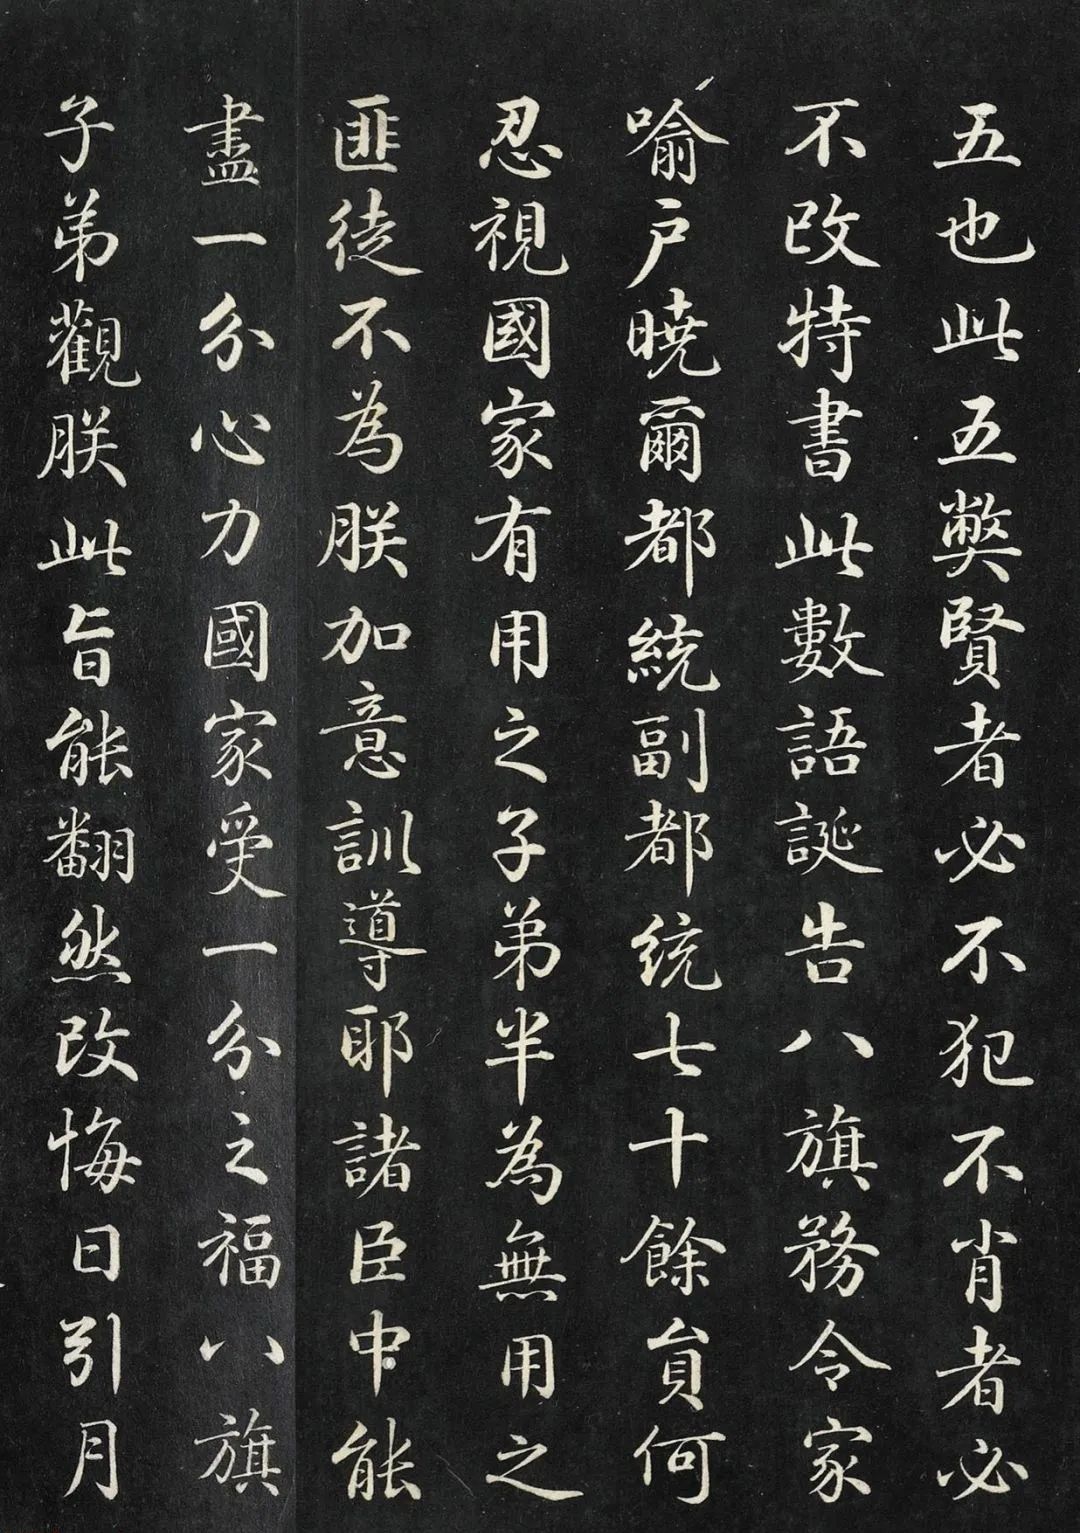 五也此五弊賢者必不犯不肖者必
不改特書此數語誕告八旗務令家
喻户曉爾都統副都統七十餘貟何
忍視國家有用之子弟半為無用之
匪徒不為朕加意訓導耶諸臣中能
盡一分心力國家受一分之福八旗
子弟觀朕此旨能翻然改悔日引月